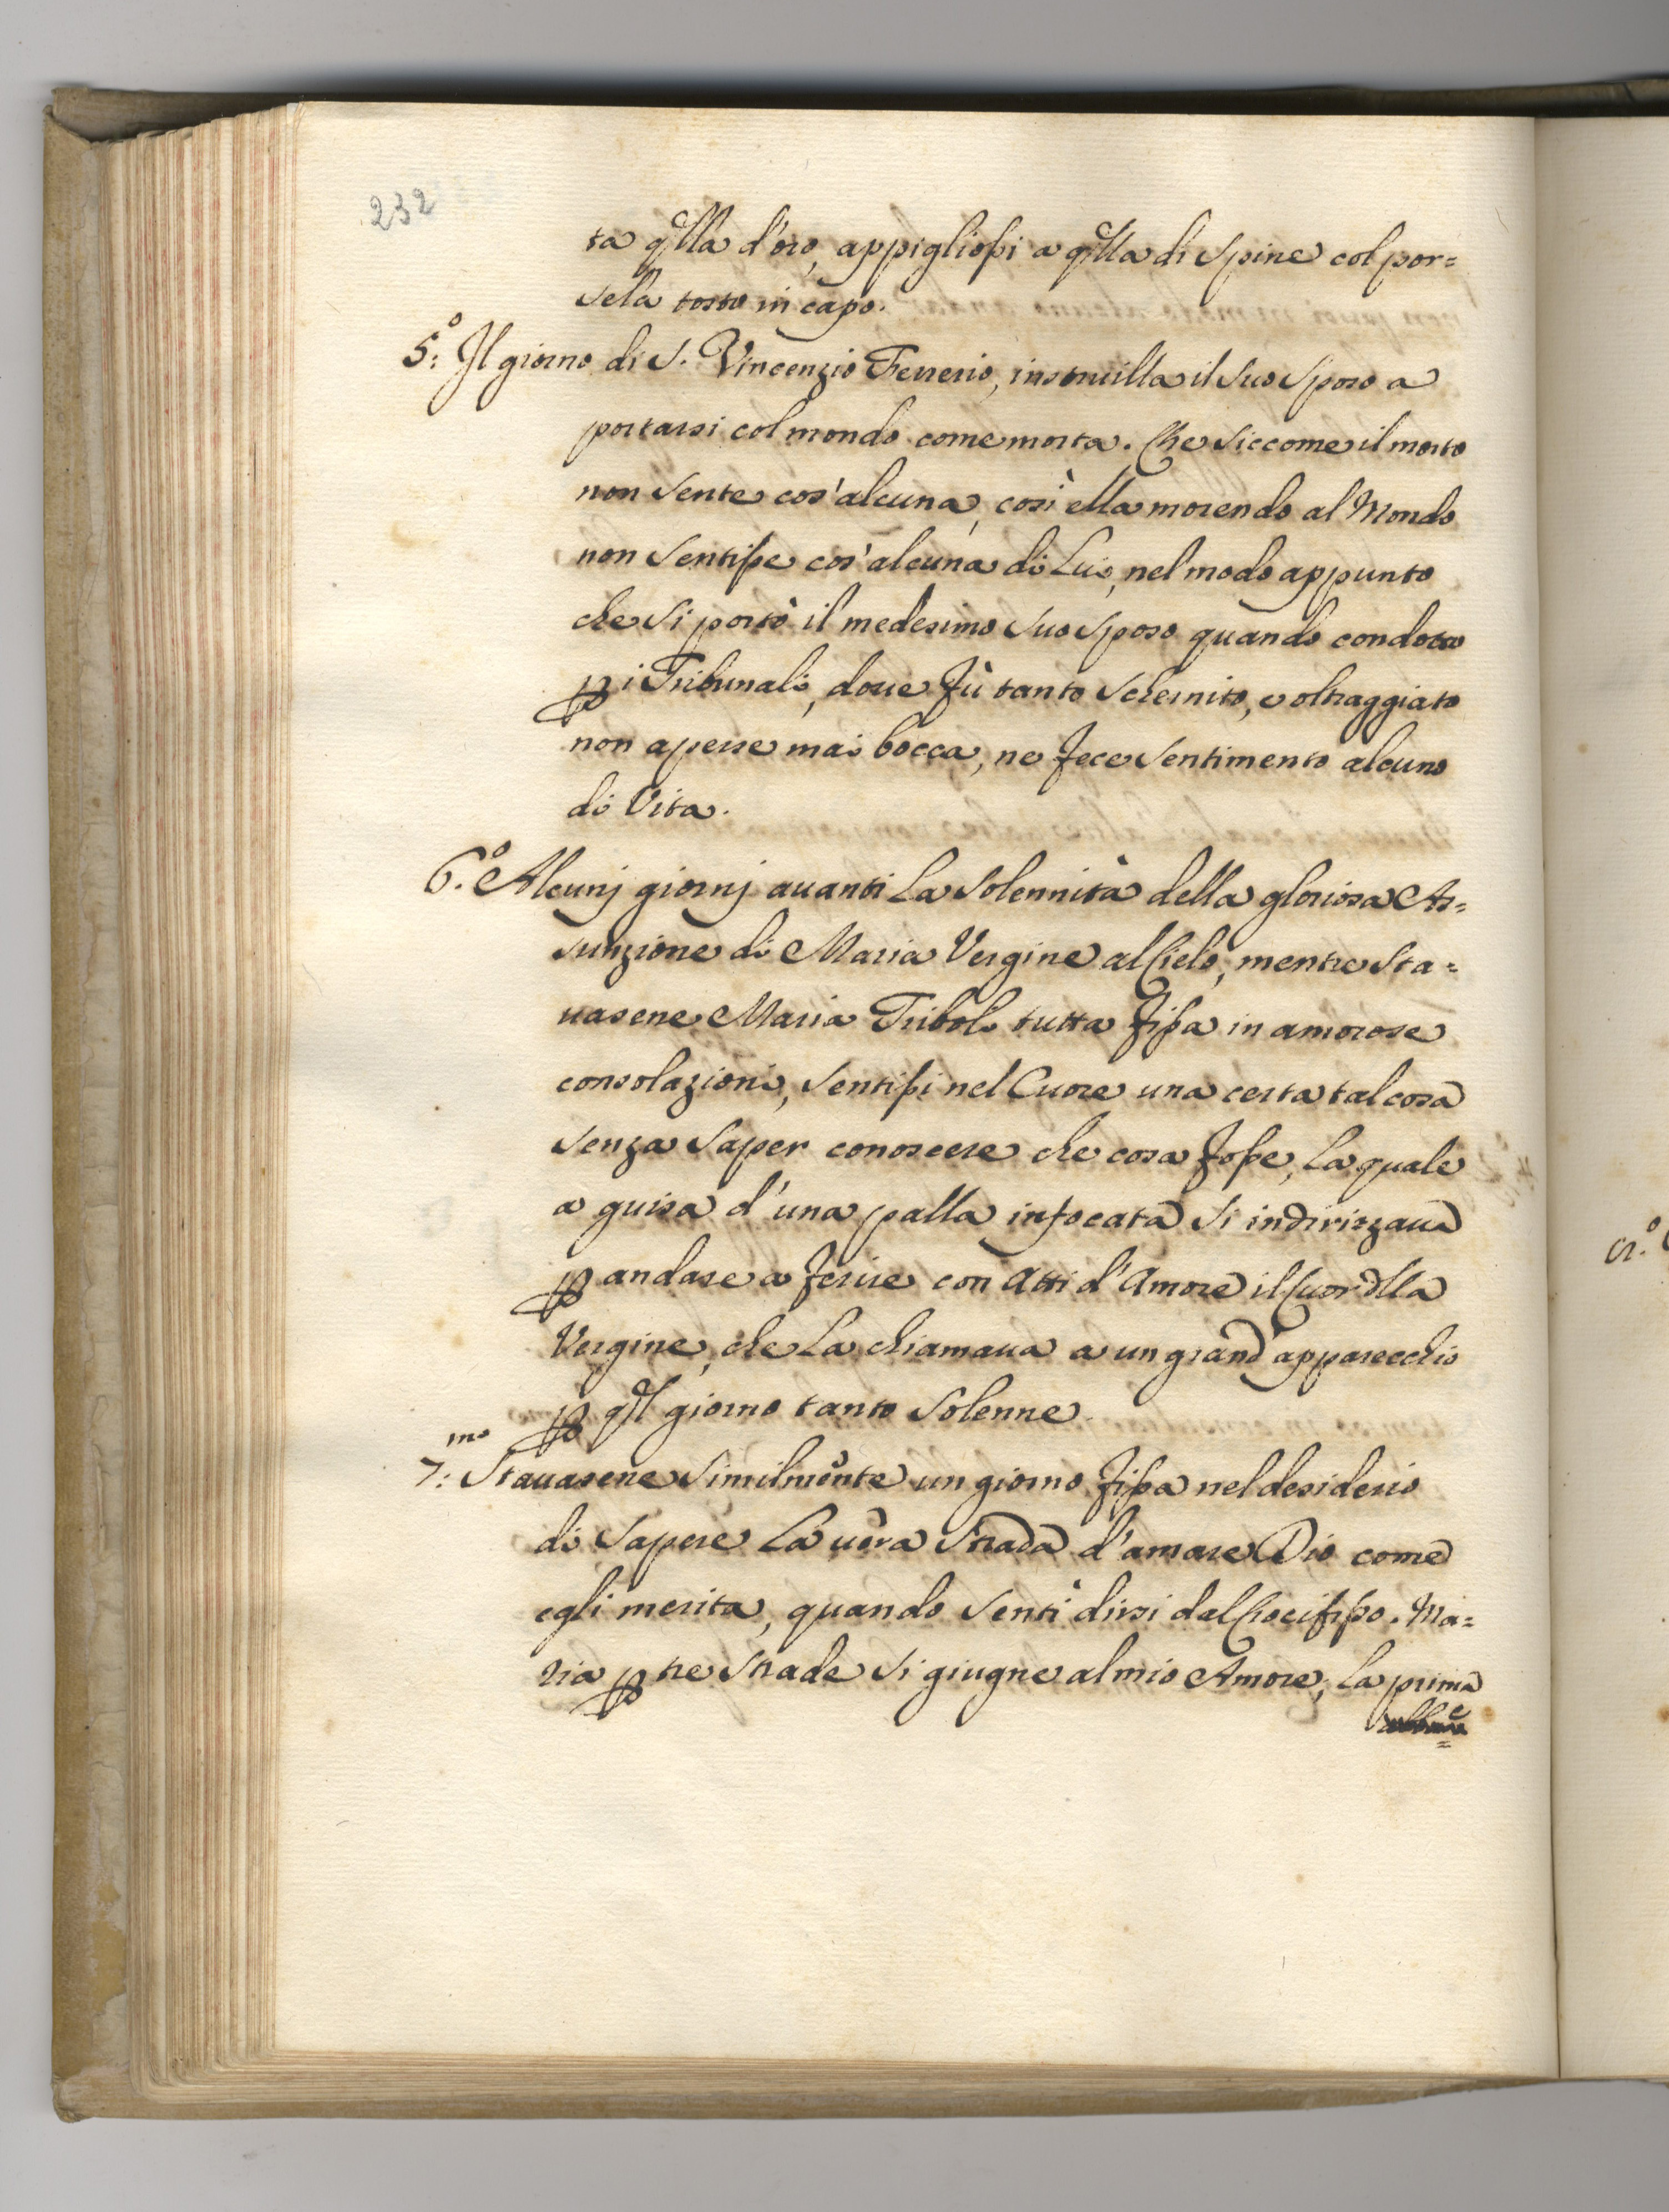 232
ta q̃lla d'oro, appigliossi a q̃lla di Spine col por=
sela tosto in capo.
5.º Il giorno di S. Vincenzio Ferrerio, instruilla il suo Sposo a
portarsi col mondo come morta. Che siccome il morto
non sente cos'alcuna, così ella morendo al Mondo
non sentisse cos'alcuna di Lui, nel modo appunto
che si portò il medesimo suo Sposo quando condotto
ꝑ i Tribunali, doue fù tanto schernito, e oltraggiato
non aperse mai bocca, ne fece sentimento alcuno
di Vita.
6.º Alcunj giornj auanti La Solennità della gloriosa As=
sunzione di Maria Vergine al Cielo, mentre sta=
uasene Maria Triboli tutta fissa in amorose
consolazioni, sentissi nel Cuore una certa tal cosa
senza saper conoscere che cosa fosse, La quale
a guisa d'una palla infocata si indirizzaua
ꝑ andare a ferire con Atti d'Amore il Cuor d̃lla
Vergine, che La chiamaua a un grand'apparecchio
ꝑ q̃l giorno tanto Solenne.
7.mo Stauasene similmente un giorno fissa nel desiderio
di sapere La uera strada d'amare Dio come
egli merita, quando sentì dirsi dal Crocifisso. Ma=
ria ꝑ tre strade si giugne al mio Amore, La prima
5.º